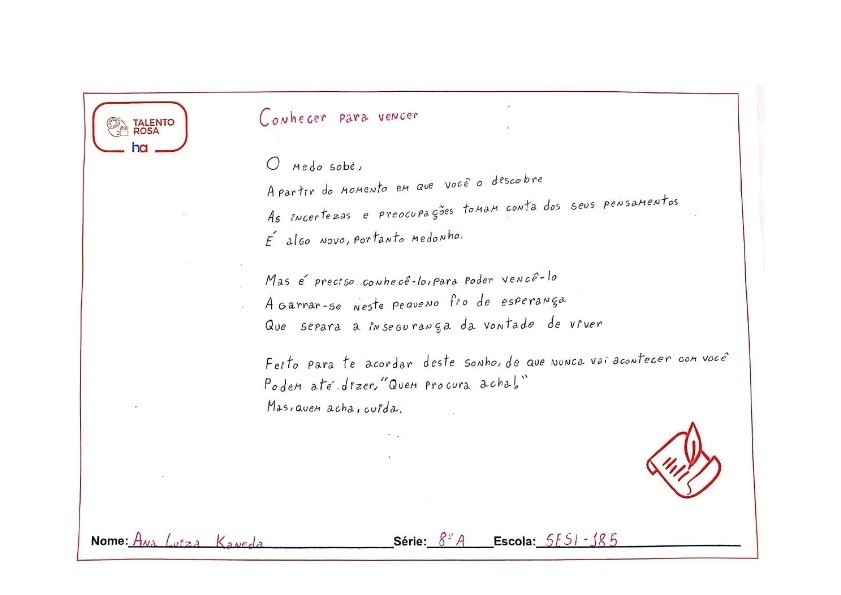 TALENTO
ROSA
ha
Conhecer para vencer
O medo sobe,
A partir do momento em que você o descobre
As incertezas e preocupações tomam conta dos seus pensamentos
É algo novo, portanto medonho.
Mas é preciso conhecê-lo, para poder vencê-lo
Agarrar-se neste pequeno fio de esperança
Que separa a insegurança da vontade de viver
Feito para te acordar deste sonho, de que nunca vai acontecer com você
Podem até dizer, "Quem procura acha!,"
Mas, quem acha, cuida.
Nome: Ana Luiza Kaneda Série: 8º A Escola: SESI-185